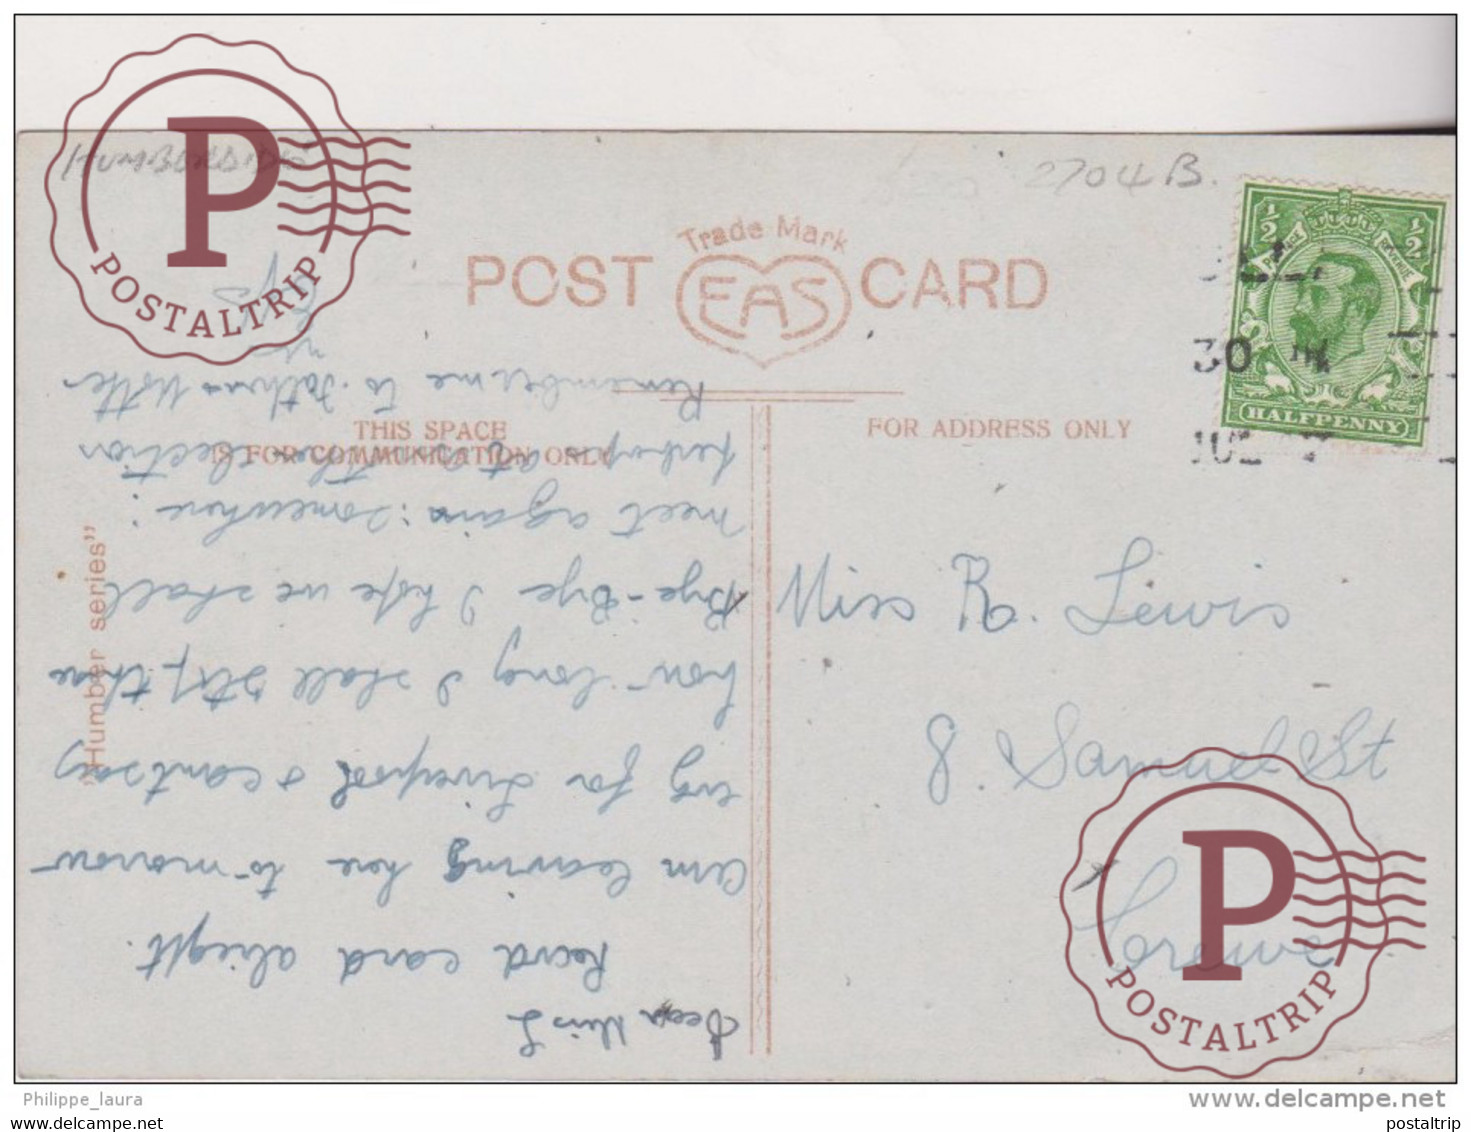 HUMBERSIDE
2704 B.
P
POSTALTRIP
Trade Mark
POST EAS CARD
½ ½
HALFPENNY
HULL
30
JUL
THIS SPACE
IS FOR COMMUNICATION ONLY
FOR ADDRESS ONLY
"Humber series"
Dear Miss L
Recvd card alright.
am leaving here to-morrow
evg for Liverpool & cant say
how long I shall stop there
Bye-Bye I hope we shall
meet again: somewhere:
perhaps at the Election
Remember me to Father & Mother
Miss R. Lewis
8. Samuel St
Crewe
P
POSTALTRIP
Philippe_laura
www.delcampe.net
postaltrip